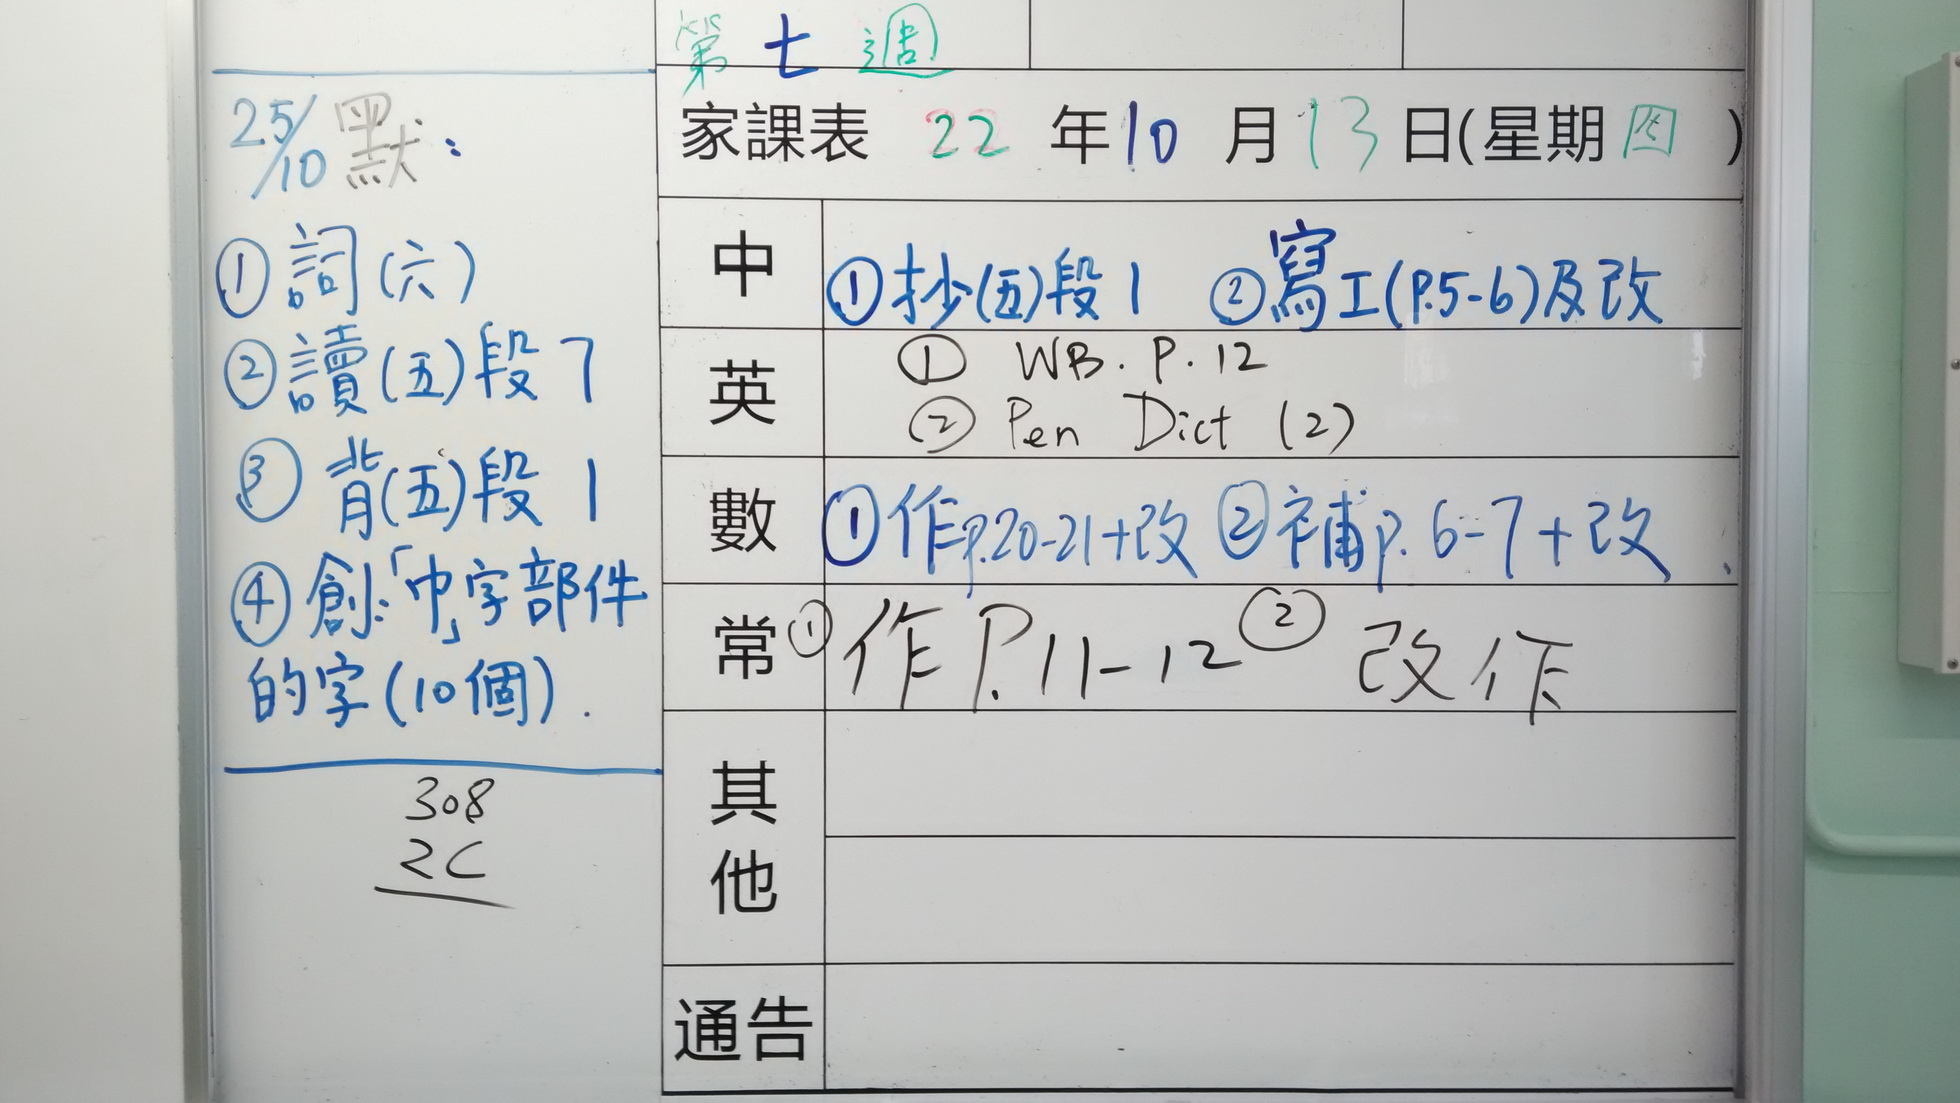 第七週
家課表 22 年 10 月 13 日(星期四)
25/10 默：
① 詞(六)
② 讀(五)段7
③ 背(五)段1
④ 創:「巾」字部件
的字(10個).
308
2C
中 ①抄(五)段1 ②寫工(P.5-6)及改
英 ① WB. P. 12
② Pen Dict (2)
數 ①作P.20-21+改 ②補P. 6-7+改
常 ①作P.11-12 ②改作
其他
通告